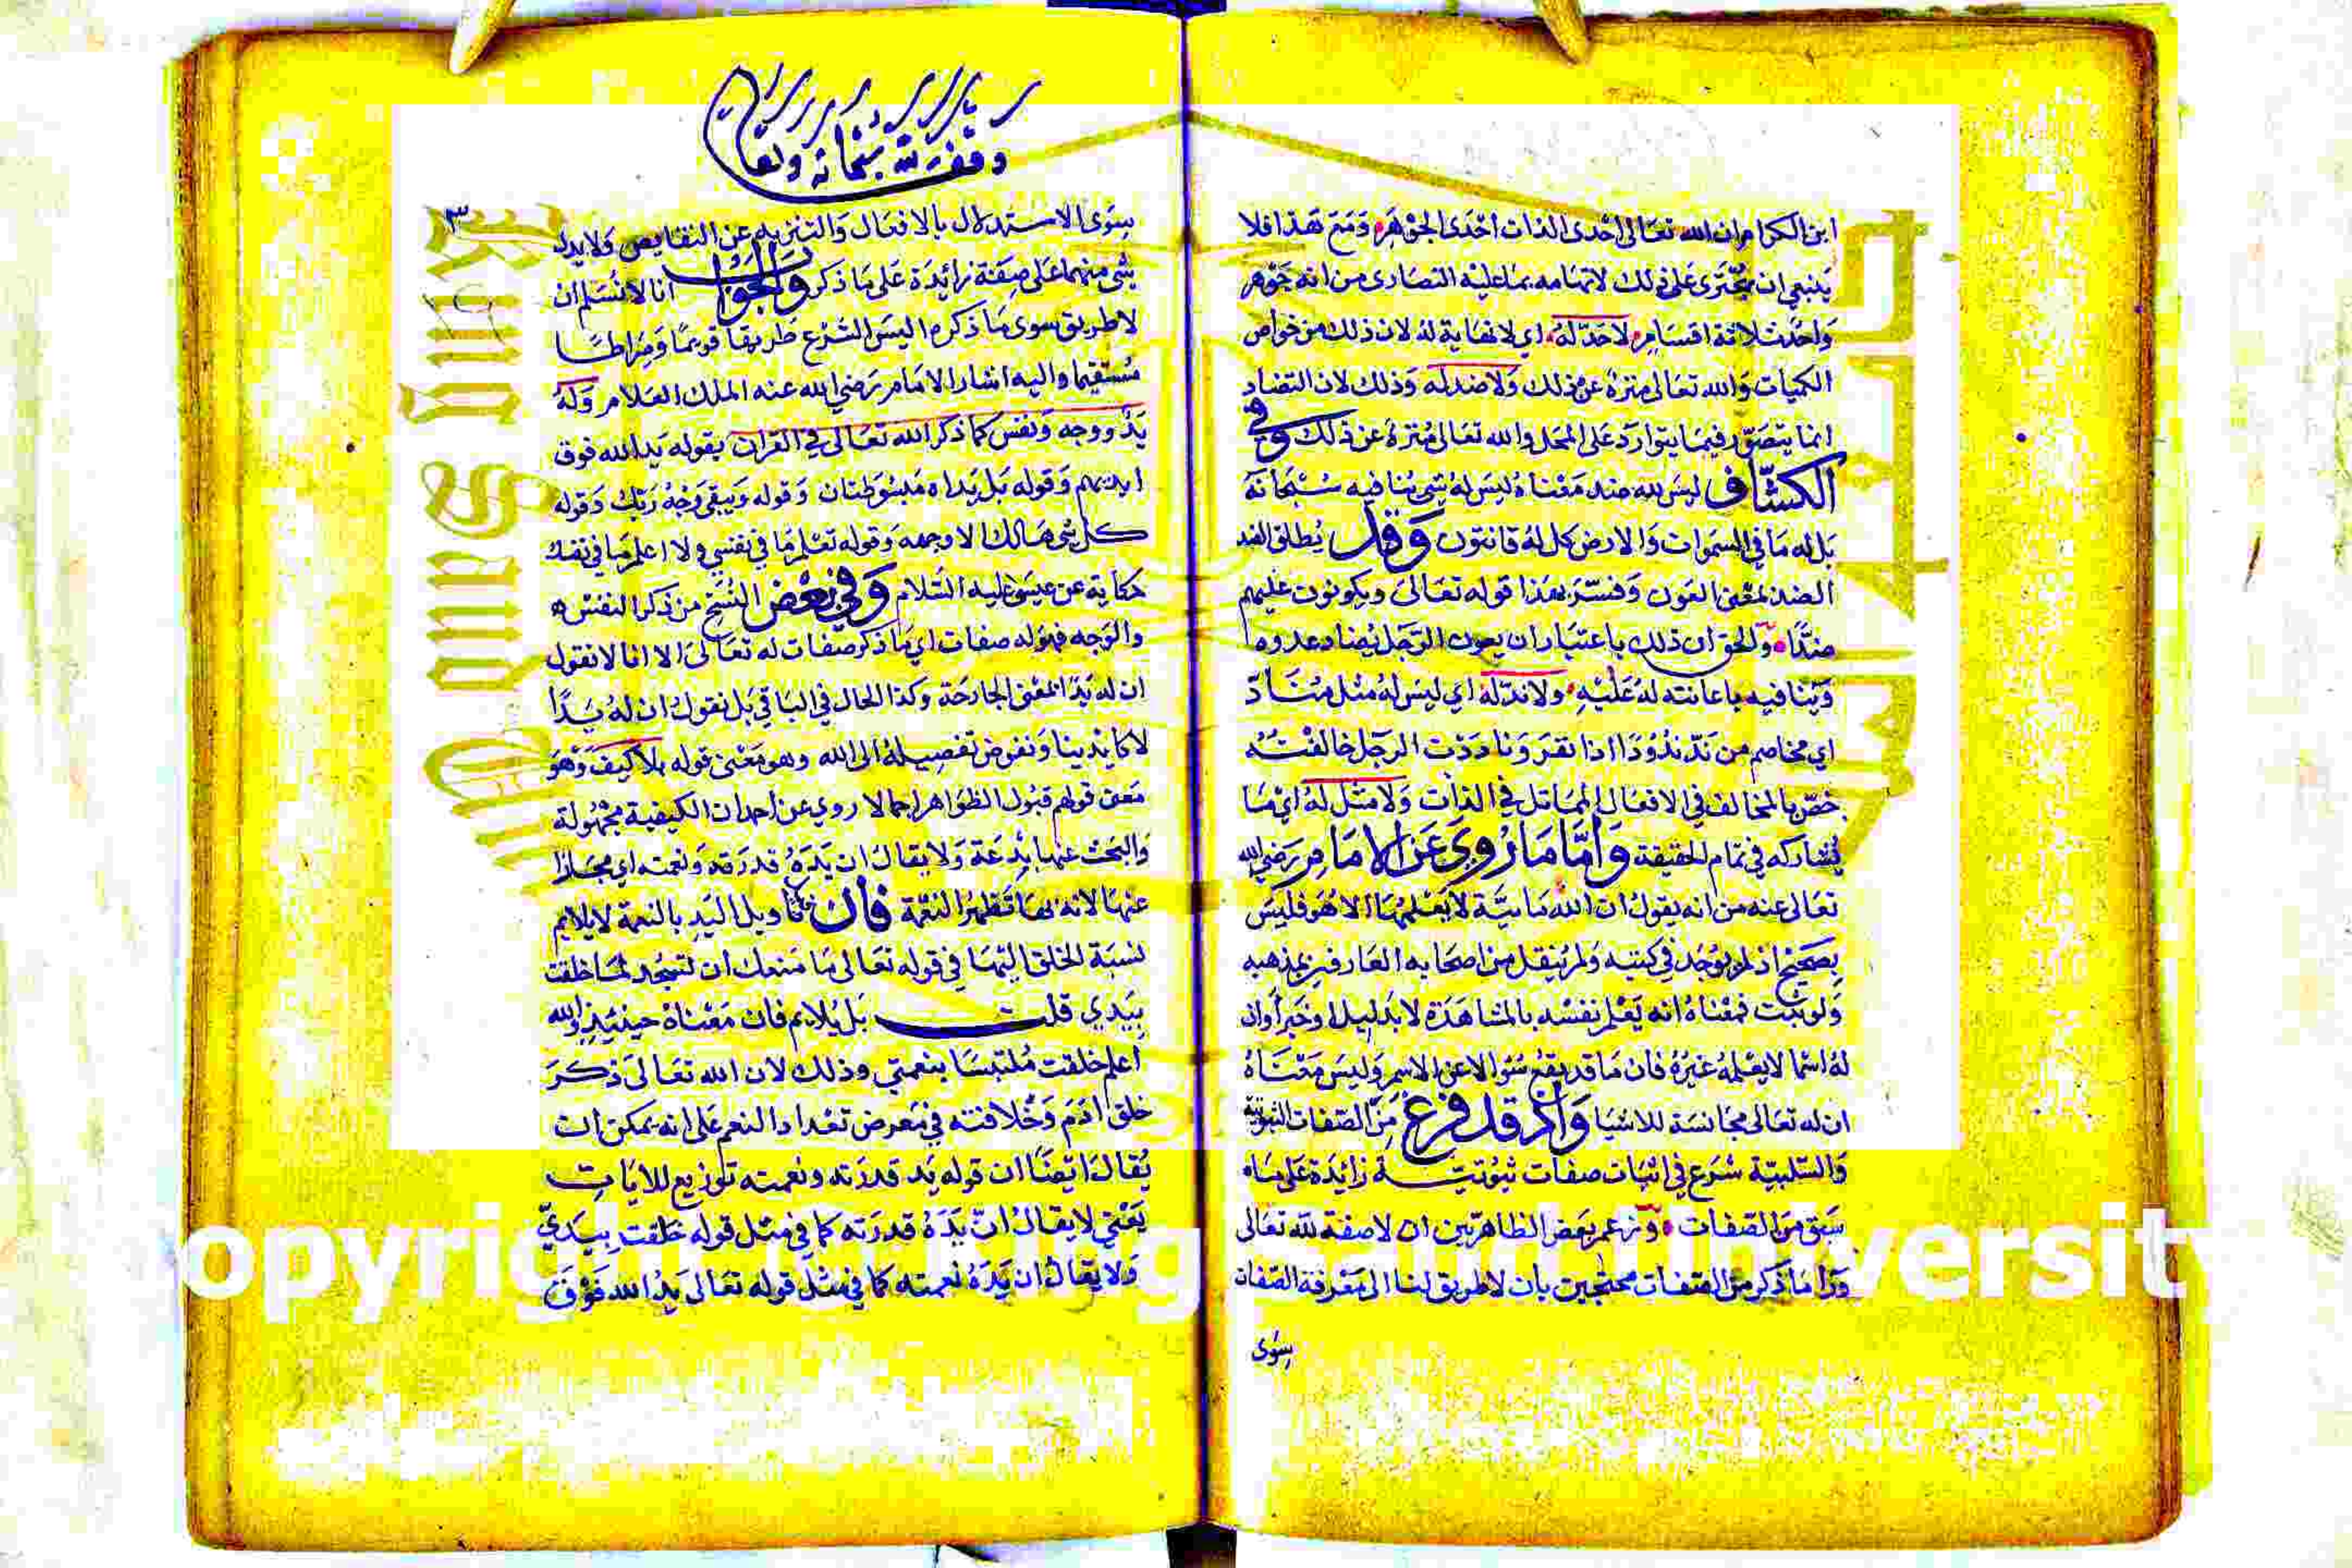 ابن الكرام ان الله تعالى احدى الذات احدى الجوهر ومع هذا فلا
ينبغي ان يجترى على ذلك لاتهامه بما عليه النصارى من انه جوهر
واحد ثلاثة اقسام لا حد له اي لا نهاية له لان ذلك من خواص
الكميات والله تعالى منزه عن ذلك ولا ضد له وذلك لان التضاد
انما يتصور فيما يتوارد على المحل والله تعالى منزه عن ذلك وفي
الكشاف ليس لله ضد معناه ليس له شي ينافيه سبحانه
بل له ما في السموات والارض كل له قانتون وقد يطلق الضد
الضد لمعنى العون وفسر بهذا قوله تعالى ويكونون عليهم
ضدا والحق ان ذلك باعتبار ان يعون الرجل يضاد عدوه
وينافيه باعانته له عليه ولا ند له اي ليس له مثل مناد
اي مخاصم من ند ندودا اذا نفر ونا ددت الرجل خالفته
خص بالمخالف في الافعال المماثل في الذات ولا مثل له اي ما
يشاركه في تمام الحقيقة واما ما روي عن الامام رضي الله
تعالى عنه من انه يقول ان الله مايية لا يعلمها الا هو فليس
بصحيح اذ لم يوجد في كتبه ولم ينقل من اصحابه العارفين بمذهبه
ولو ثبت فمعناه انه يعلم نفسه بالمشاهدة لا بدليل او خبر او ان
له اسما لا يعلمه غيره فان ما قد يقع سؤالا عن الاسم وليس معناه
ان له تعالى مجانسة للاشيا واذ قد فرغ من الصفات الثبوتية
والسلبية شرع في اثبات صفات ثبوتية زائدة على ما
سبق من الصفات وزعم بعض الظاهريين ان لا صفة لله تعالى
ورا ما ذكر من الصفات محتجين بان لا طريق لنا الى معرفة الصفات
سوى
وقف لله سبحانه وتعالى
٣
سوى الاستدلال بالافعال والتنزيه عن النقايص ولا يدل
شي منهما على صفة زائدة على ما ذكر والجواب انا لا نسلم ان
لا طريق سوى ما ذكره اليس الشرع طريقا قويما وصراطا
مستقيما واليه اشار الامام رضي الله عنه الملك العلام وله
يد ووجه ونفس كما ذكر الله تعالى في القران بقوله يد الله فوق
ايديهم وقوله بل يداه مبسوطتان وقوله ويبقى وجه ربك وقوله
كل شي هالك الا وجهه وقوله تعلم ما في نفسي ولا اعلم ما في نفسك
حكاية عن عيسى عليه السلام وفي بعض النسخ من ذكر النفس
والوجه فهو له صفات اي ما ذكر صفات له تعالى الا انا لا نقول
ان له يدا بمعنى الجارحة وكذا الحال في الباقي بل نقول ان له يدا
لا كايدينا ونفوض تفصيله الى الله وهو معنى قوله بلا كيف وهو
معنى قولهم قبول الظواهر اجمالا روي عن احد ان الكيفية مجهولة
والبحث عنها بدعة ولا يقال ان يده قدرته ونعمته اي مجازا
عنها لانه بها تظهر النعمة فان تاويل اليد بالنعمة لا يلايم
نسبة الخلق اليها في قوله تعالى ما منعك ان تسجد لما خلقت
بيدي قلت بل يلايم فان معناه حينئيذ والله
اعلم خلقت ملتبسا بنعمتي وذلك لان الله تعالى ذكر
خلق ادم وخلافته في معرض تعداد النعم على انه يمكن ان
يقال ايضا ان قوله يد قدرته ونعمته توزيع للايات
يعني لا يقال ان يده قدرته كما في مثل قوله خلقت بيدي
ولا يقال ان يده نعمته كما في مثل قوله تعالى يد الله فوق